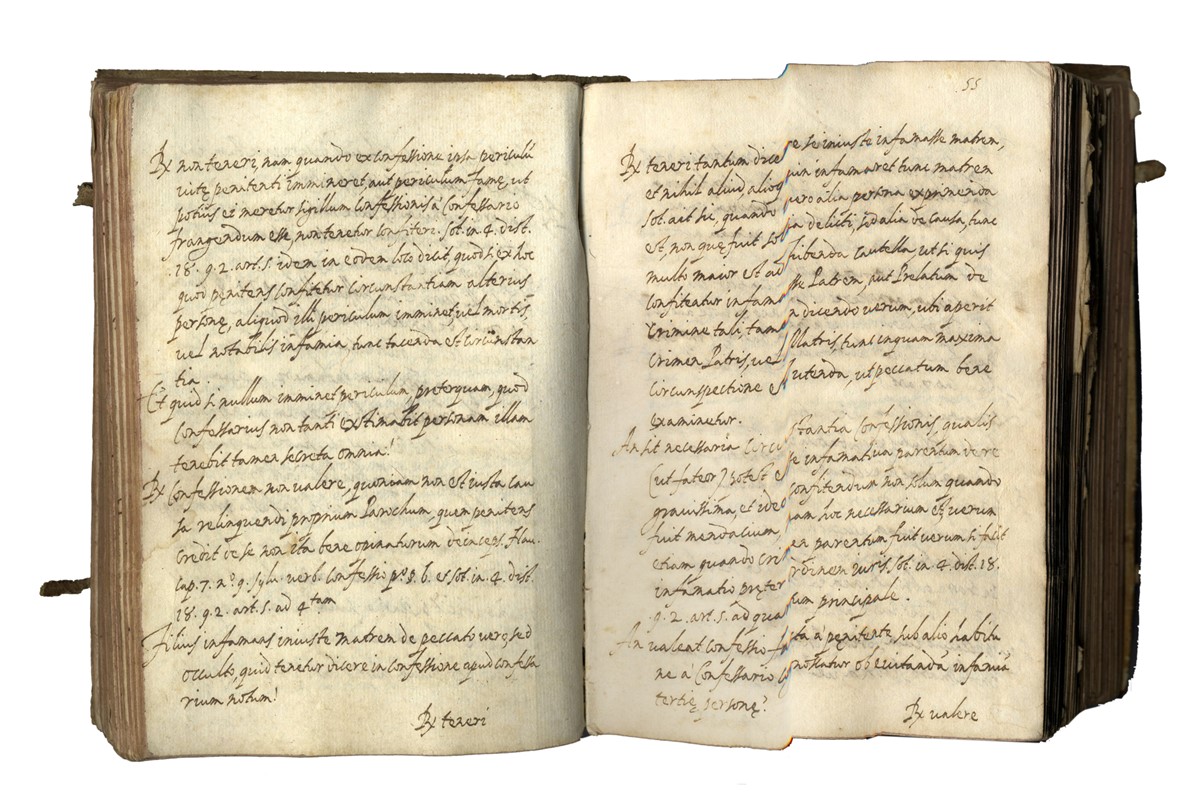 ℞ non teneri, nam quando ex confessione ipsa periculū
vitę penitenti immineret, aut periculum famę, ut
potius ei meretur sigillum confessionis a Confessario
frangendum esse, non tenetur confiteri. sot. in. 4. dist.
18. q. 2. art. 5. idem in eodem loco dicit, quod si ex hoc
quod penitens confitetur circunstantiam alterius
personę, aliquod illi periculum imminet, vel mortis,
vel notabilis infamia, tunc tacenda est circūnstan
tia.
Et quid si nullum imminet periculum, preterquam, quod
Confessarius non tanti existimabit personam illam
tenebit tamen secreta omnia?
℞ Confessionem non valere, quoniam non est iusta cau
sa relinquendi proprium Parochum, quem penitens
credit de se non ita bene opinaturum deinceps. Nau.
cap. 7. nº. 9. sylv. verb. Confessio pº. q. 6. et sot. in. 4. dist.
18. q. 2. art. 5. ad 4tam
Filius infamans iniuste matrem de peccato vero, sed
occulto, quid tenetur dicere in confessione apud confessa
rium notum?
℞ teneri
55
℞ teneri tantum dice e se iniuste infamasse matrem,
et nihil aliud, alioq in infamaret tunc matrem
sot. ait hic, quando pero alia persona exprimenda
est, non quę fuit so a delicti, sed alia de causa, tunc
multo maior est ad ibenda cautella, ut si quis
confiteatur infam sse Patrem, aut Prelatum de
crimine tali, tam n dicendo verum, ubi aperit
crimen Patris, ve l fratris, tunc inquam maxima
circunspectione e utenda, ut peccatum bene
examinetur.
An sit necessaria circu stantia confessionis, qualis
(ut fateor) potest e se infamativa parentum de re
gravissima, et ideo confitendum non solum quando
fuit mendacium, iam hoc necessarium et verum
etiam quando cri en parentum fuit verum si facit
infamatio pręter ordinem iuris. sot. in. 4. dist. 18.
q. 2. art. 5. ad qua tum principale.
An valeat confessio fa cta a penitente sub alio habitu
ne a Confessario co noscatur ob evitandā infamiā
tertię personę?
℞ valere